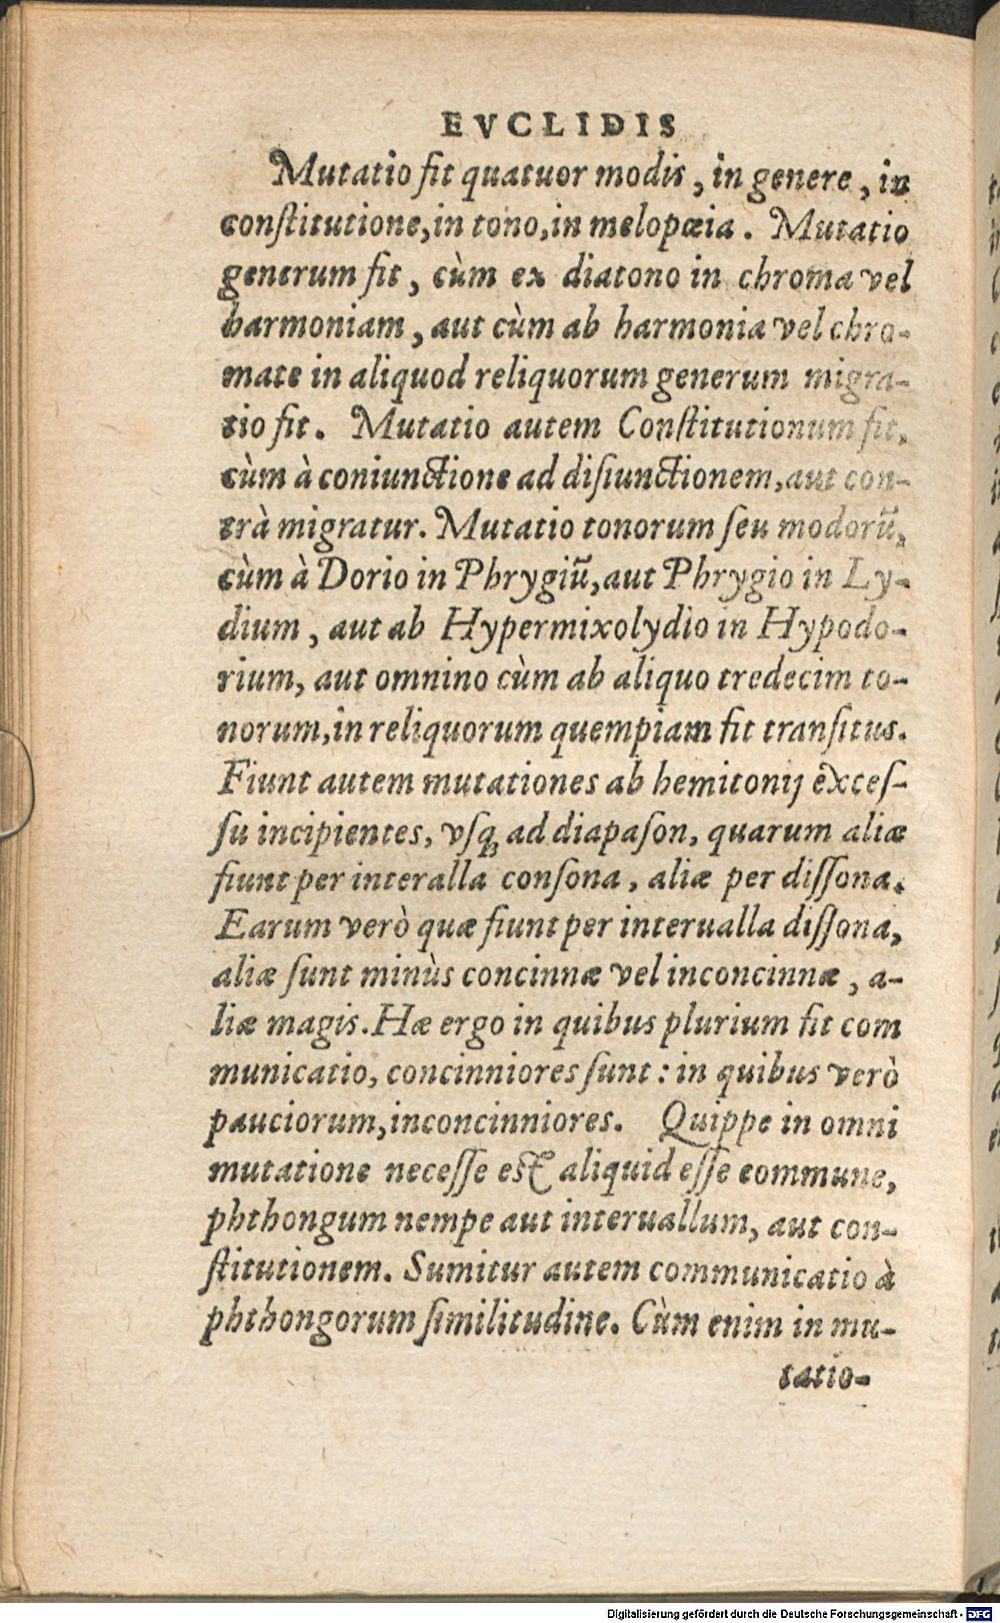 EVCLIDIS
Mutatio fit quatuor modis, in genere, in
conſtitutione,in tono,in melopœia. Mutatio
generum fit, cùm ex diatono in chroma vel
harmoniam, aut cùm ab harmonia vel chro-
mate in aliquod reliquorum generum migra-
tio fit. Mutatio autem Conſtitutionum fit,
cùm à coniunctione ad diſiunctionem,aut con-
trà migratur. Mutatio tonorum ſeu modorū,
cùm à Dorio in Phrygiū,aut Phrygio in Ly-
dium, aut ab Hypermixolydio in Hypodo-
rium, aut omnino cùm ab aliquo tredecim to-
norum,in reliquorum quempiam fit tranſitus.
Fiunt autem mutationes ab hemitonij exceſ-
ſu incipientes, vſqꝫ ad diapaſon, quarum aliæ
fiunt per interalla conſona, aliæ per diſſona.
Earum verò quæ fiunt per interualla diſſona,
aliæ ſunt minùs concinnæ vel inconcinnæ, a-
liæ magis. Hæ ergo in quibus plurium fit com
municatio, concinniores ſunt: in quibus verò
pauciorum,inconcinniores. Quippe in omni
mutatione neceſſe eſt aliquid eſſe commune,
phthongum nempe aut interuallum, aut con-
ſtitutionem. Sumitur autem communicatio à
phthongorum ſimilitudine. Cùm enim in mu-
tatio-
Digitalisierung gefördert durch die Deutsche Forschungsgemeinschaft - DFG